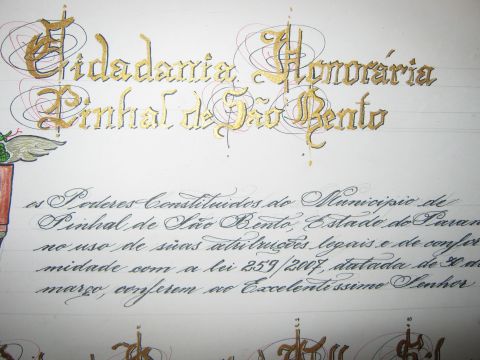 Cidadania Honorária
Pinhal de São Bento
os Poderes Constituídos do Município de
Pinhal de São Bento, Estado do Paran
no uso de súas atribuições legais e de confor
midade com a lei 259/2007, datada de 30 de
março, conferem ao Excelentíssimo Senhor